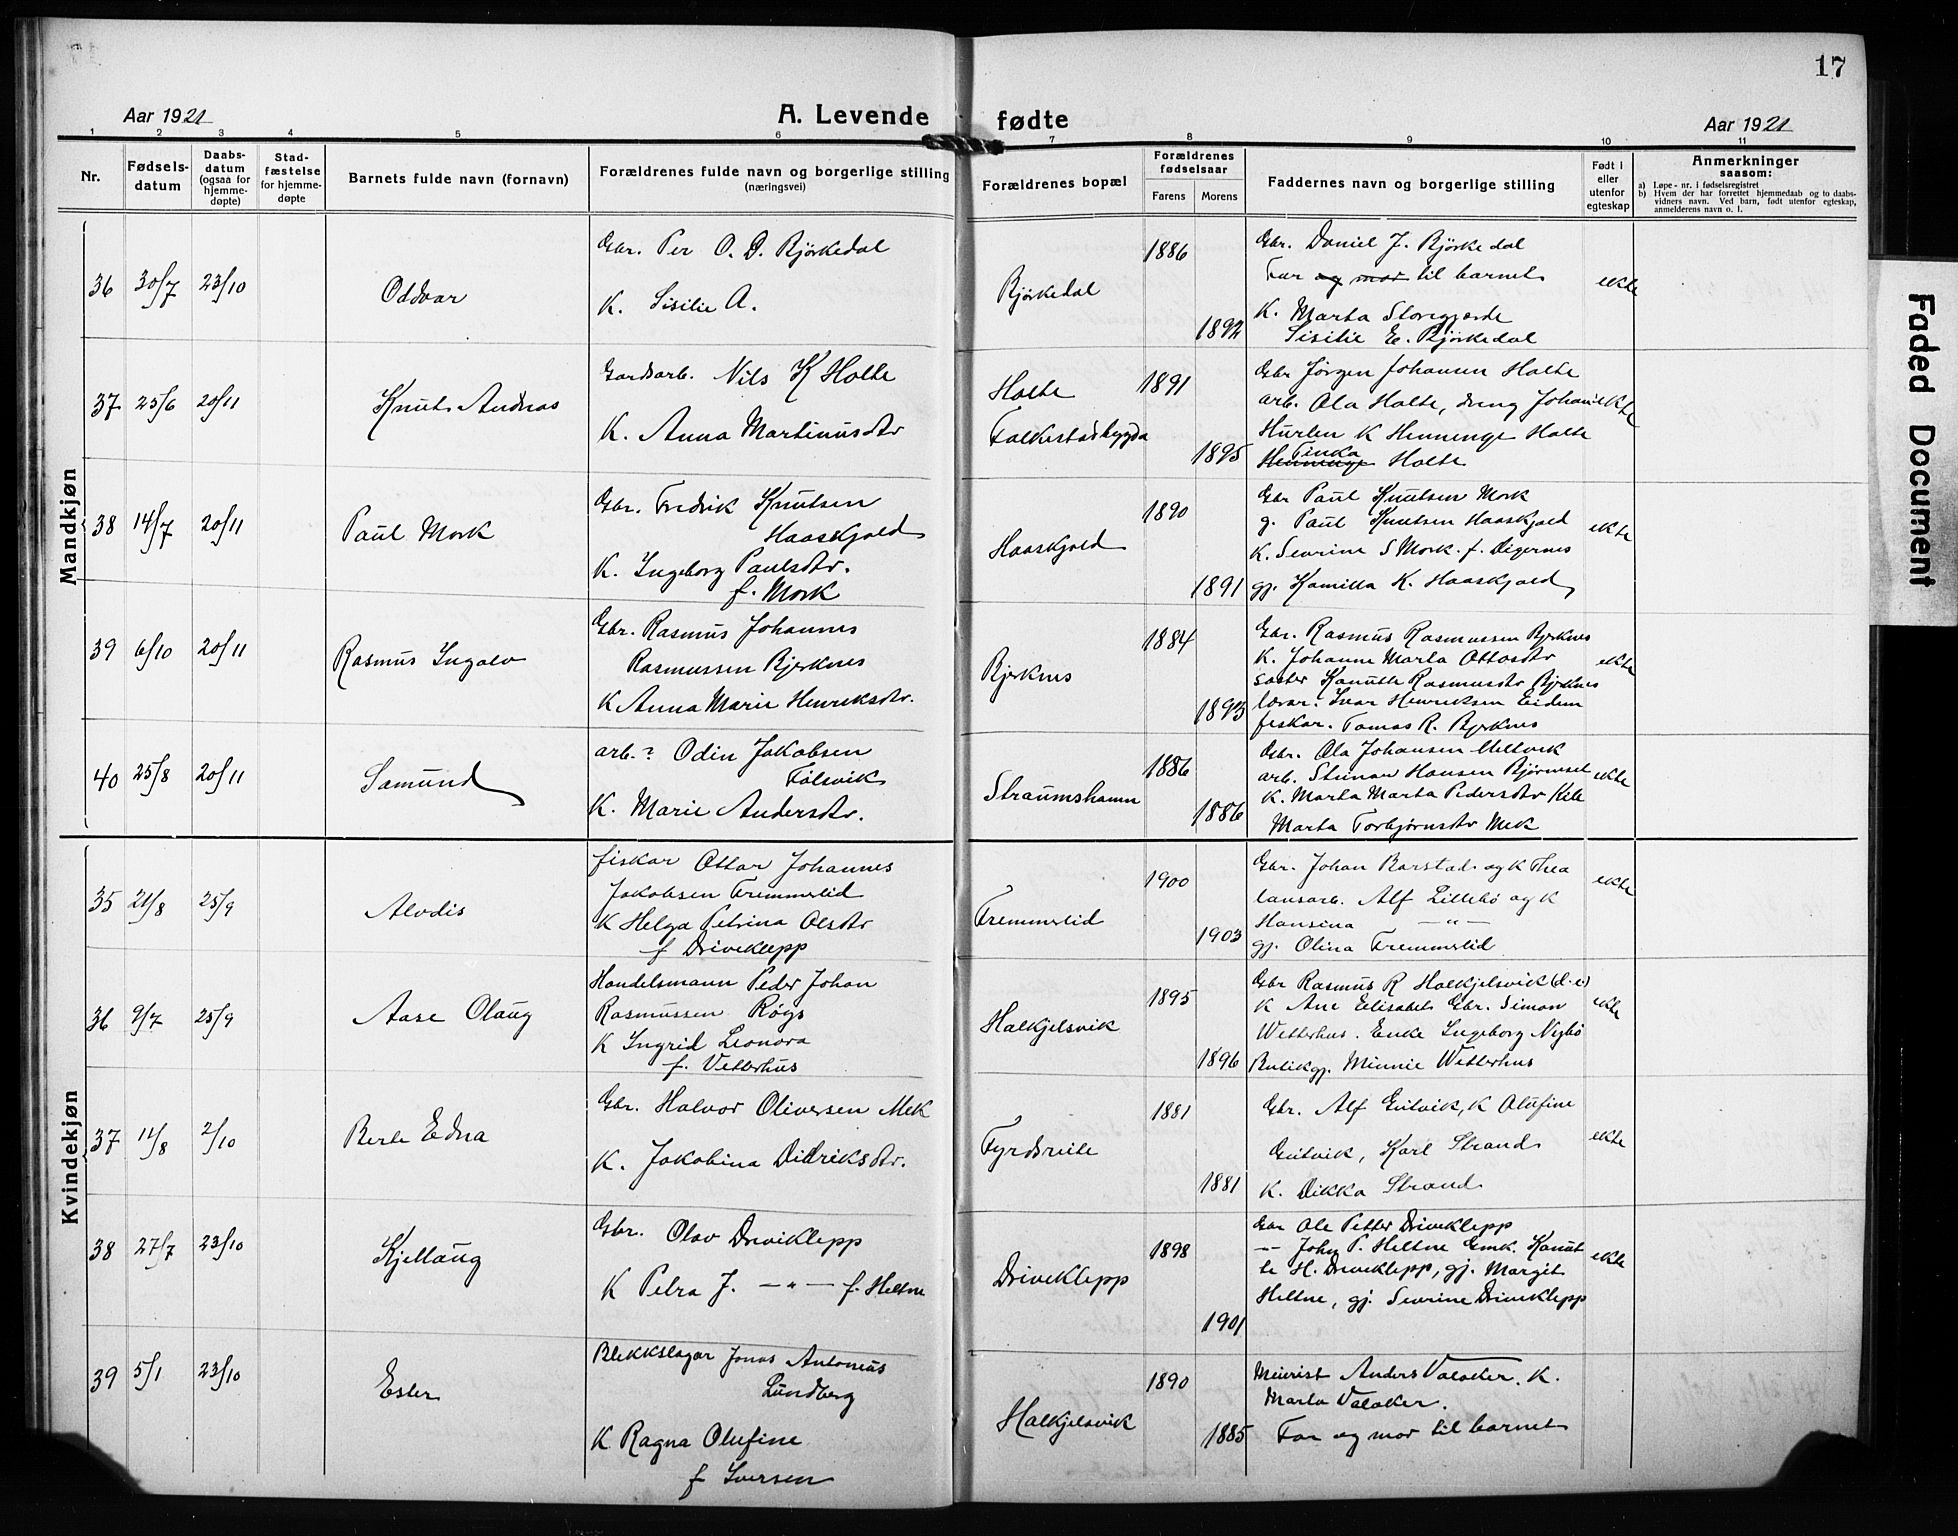 17
Aar 1921 A. Levende fødte Aar 1921
1 2 3 4 5 6 7 8 9 10 11
Nr. Fødsels-datum Daabs-datum (ogsaa for hjemme-døpte) Stad-fæstelse for hjemme-døpte Barnets fulde navn (fornavn) Forældrenes fulde navn og borgerlige stilling (næringsvei) Forældrenes bopæl Forældrenes fødselsaar Farens Morens Faddernes navn og borgerlige stilling Født i eller utenfor egteskap Anmerkninger saasom:
a) Løpe-nr. i fødselsregistret
b) Hvem der har forrettet hjemmedaab og to daabs-vidners navn. Ved barn, født utenfor egteskap, anmelderens navn o. l.
Mandkjøn
36 30/7 23/10 Oddvar Gbr. Per O. D. Bjørkedal
K. Sisilie A.
Bjørkedal 1886 1892
Gbr. Daniel J. Bjørkedal
Far og mor til barnet
K. Marta Storegjærde
Sisilie E. Bjørkedal
ekte
37 25/6 20/11 Knut Andreas Gardsarb. Nils K Holte
K. Anna Martinusdtr
Holte
Falkestadbygda 1891 1895
Gbr Jørgen Johansen Holte
arb. Ola Holte, dreng Johan
Hurlen K Henninge Holte
Henninge Tinka Holte
ekte
38 14/7 20/11 Paul Mork Gbr. Fredrik Knutsen
Haaskjold
K. Ingeborg Paulsdtr.
f. Mork
Haaskjold 1890 1891
Gbr Paul Knutsen Mork
g. Paul Knutsen Haaskjold
K. Sevrine S Mork. f. Digernes
gj. Kamilla K. Haaskjold
ekte
39 6/10 20/11 Rasmus Ingolv Gbr. Rasmus Johannes
Rasmussen Bjerknes
K Anna Marie Henriksdtr.
Bjerknes 1884 1893
Gbr. Rasmus Rasmussen Bjerknes
K. Johanne Marta Ottosdtr
søster Kanutte Rasmusdtr Bjerknes
lærar. Ivar Henriksen Eidem
fiskar. Tomas R. Bjerknes
ekte
40 25/8 20/11 Samund arb.? Odin Jakobsen
Følsvik
K. Marie Andersdtr.
Straumshamn 1886 1886
Gbr. Ola Johansen Meltvik
arb. Steinar Hansen Bjørneset
K. Marta Marta Pedersdtr Kile
Marta Torbjørnsdtr Mek
ekte
Kvindekjøn
35 21/8 25/9 Alvdis fiskar Ottar Johannes
Jakobsen Fremmerlid
K Helga Petrina Olsdtr
f Driveklepp
Fremmerlid 1900 1903
Gbr. Johan Barstad og K Thea
lausarb. Alf Lillebø og K
Hansina —"—
gj. Olina Fremmerlid
ekte
36 9/7 25/9 Aase Olaug Handelsmann Peder Johan
Rasmussen Røgs
K Ingrid Leonora
f. Vetterhus
Halkjelsvik 1895 1896
Gbr Rasmus R Halkjelsvik (d. e)
K Ane Elisabet Gbr. Simon
Wetterhus. Enke Ingeborg Nesbø
Butikgj. Minnie Wetterhus
ekte
37 11/8 2/10 Berle Edna Gbr. Halvor Oliversen Mek
K. Jakobina Didriksdtr.
Fyrdsreite 1881 1881
Gbr. Alf Gutvik, K Olufine
Gutvik, Karl Strand
K. Dikka Strand
ekte
38 27/7 23/10 Kjellaug Gbr. Olav Driveklepp
K Petra J. —"— f. Heltne
Driveklepp 1898 1901
Gbr Ole Petter Driveklepp
—"— John P. Heltne Gmk. Kanut
te H. Driveklepp, gj. Margit
Heltne, gj. Sevrine Driveklepp
ekte
39 5/1 23/10 Ester Blekkslagar Jonas Antonius
Lundberg
K Ragna Olufine
f Iversen
Halkjelsvik 1890 1885
Meierist Anders Valaker, K.
Marta Valaker.
Far og mor til barnet
Faded Document